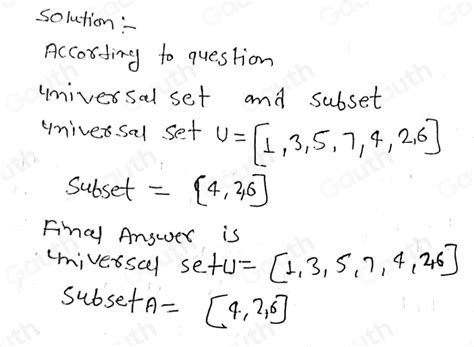 Solution :-
According to question
universal set and subset
universal set U = [1, 3, 5, 7, 4, 2, 6]
Subset = {4, 2, 6]
Final Answer is
universal set U = [1, 3, 5, 7, 4, 2, 6]
Subset A = [4, 2, 6]